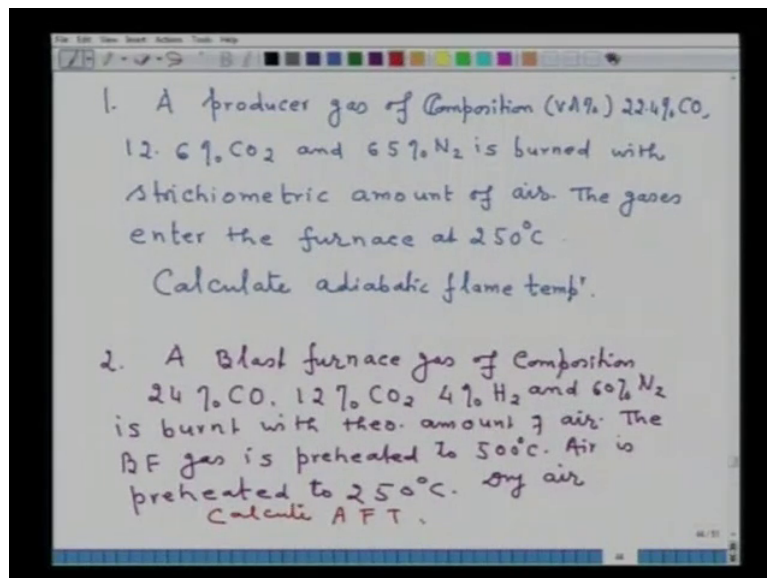 File Edit View Insert Actions Tools Help
1. A producer gas of Composition (Vol%) 22.4% CO,
12.6% CO2 and 65% N2 is burned with
stoichiometric amount of air. The gases
enter the furnace at 250°C.
Calculate adiabatic flame temp'.
2. A Blast furnace gas of Composition
24% CO. 12% CO2 4% H2 and 60% N2
is burnt with theo. amount of air. The
BF gas is preheated to 500°C. Air is
preheated to 250°C. Dry air
Calcute A F T.